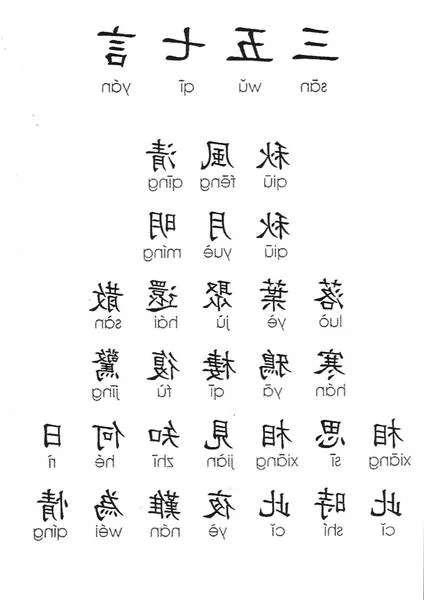 三五七言
sān wǔ qī yán
秋風清
qiū fēng qīng
秋月明
qiū yuè míng
落葉聚還散
luò yè jù hái sàn
寒鴉棲復驚
hán yā qī fù jīng
相思相見知何日
xiāng sī xiāng jiàn zhī hé rì
此時此夜難為情
cǐ shí cǐ yè nán wéi qíng